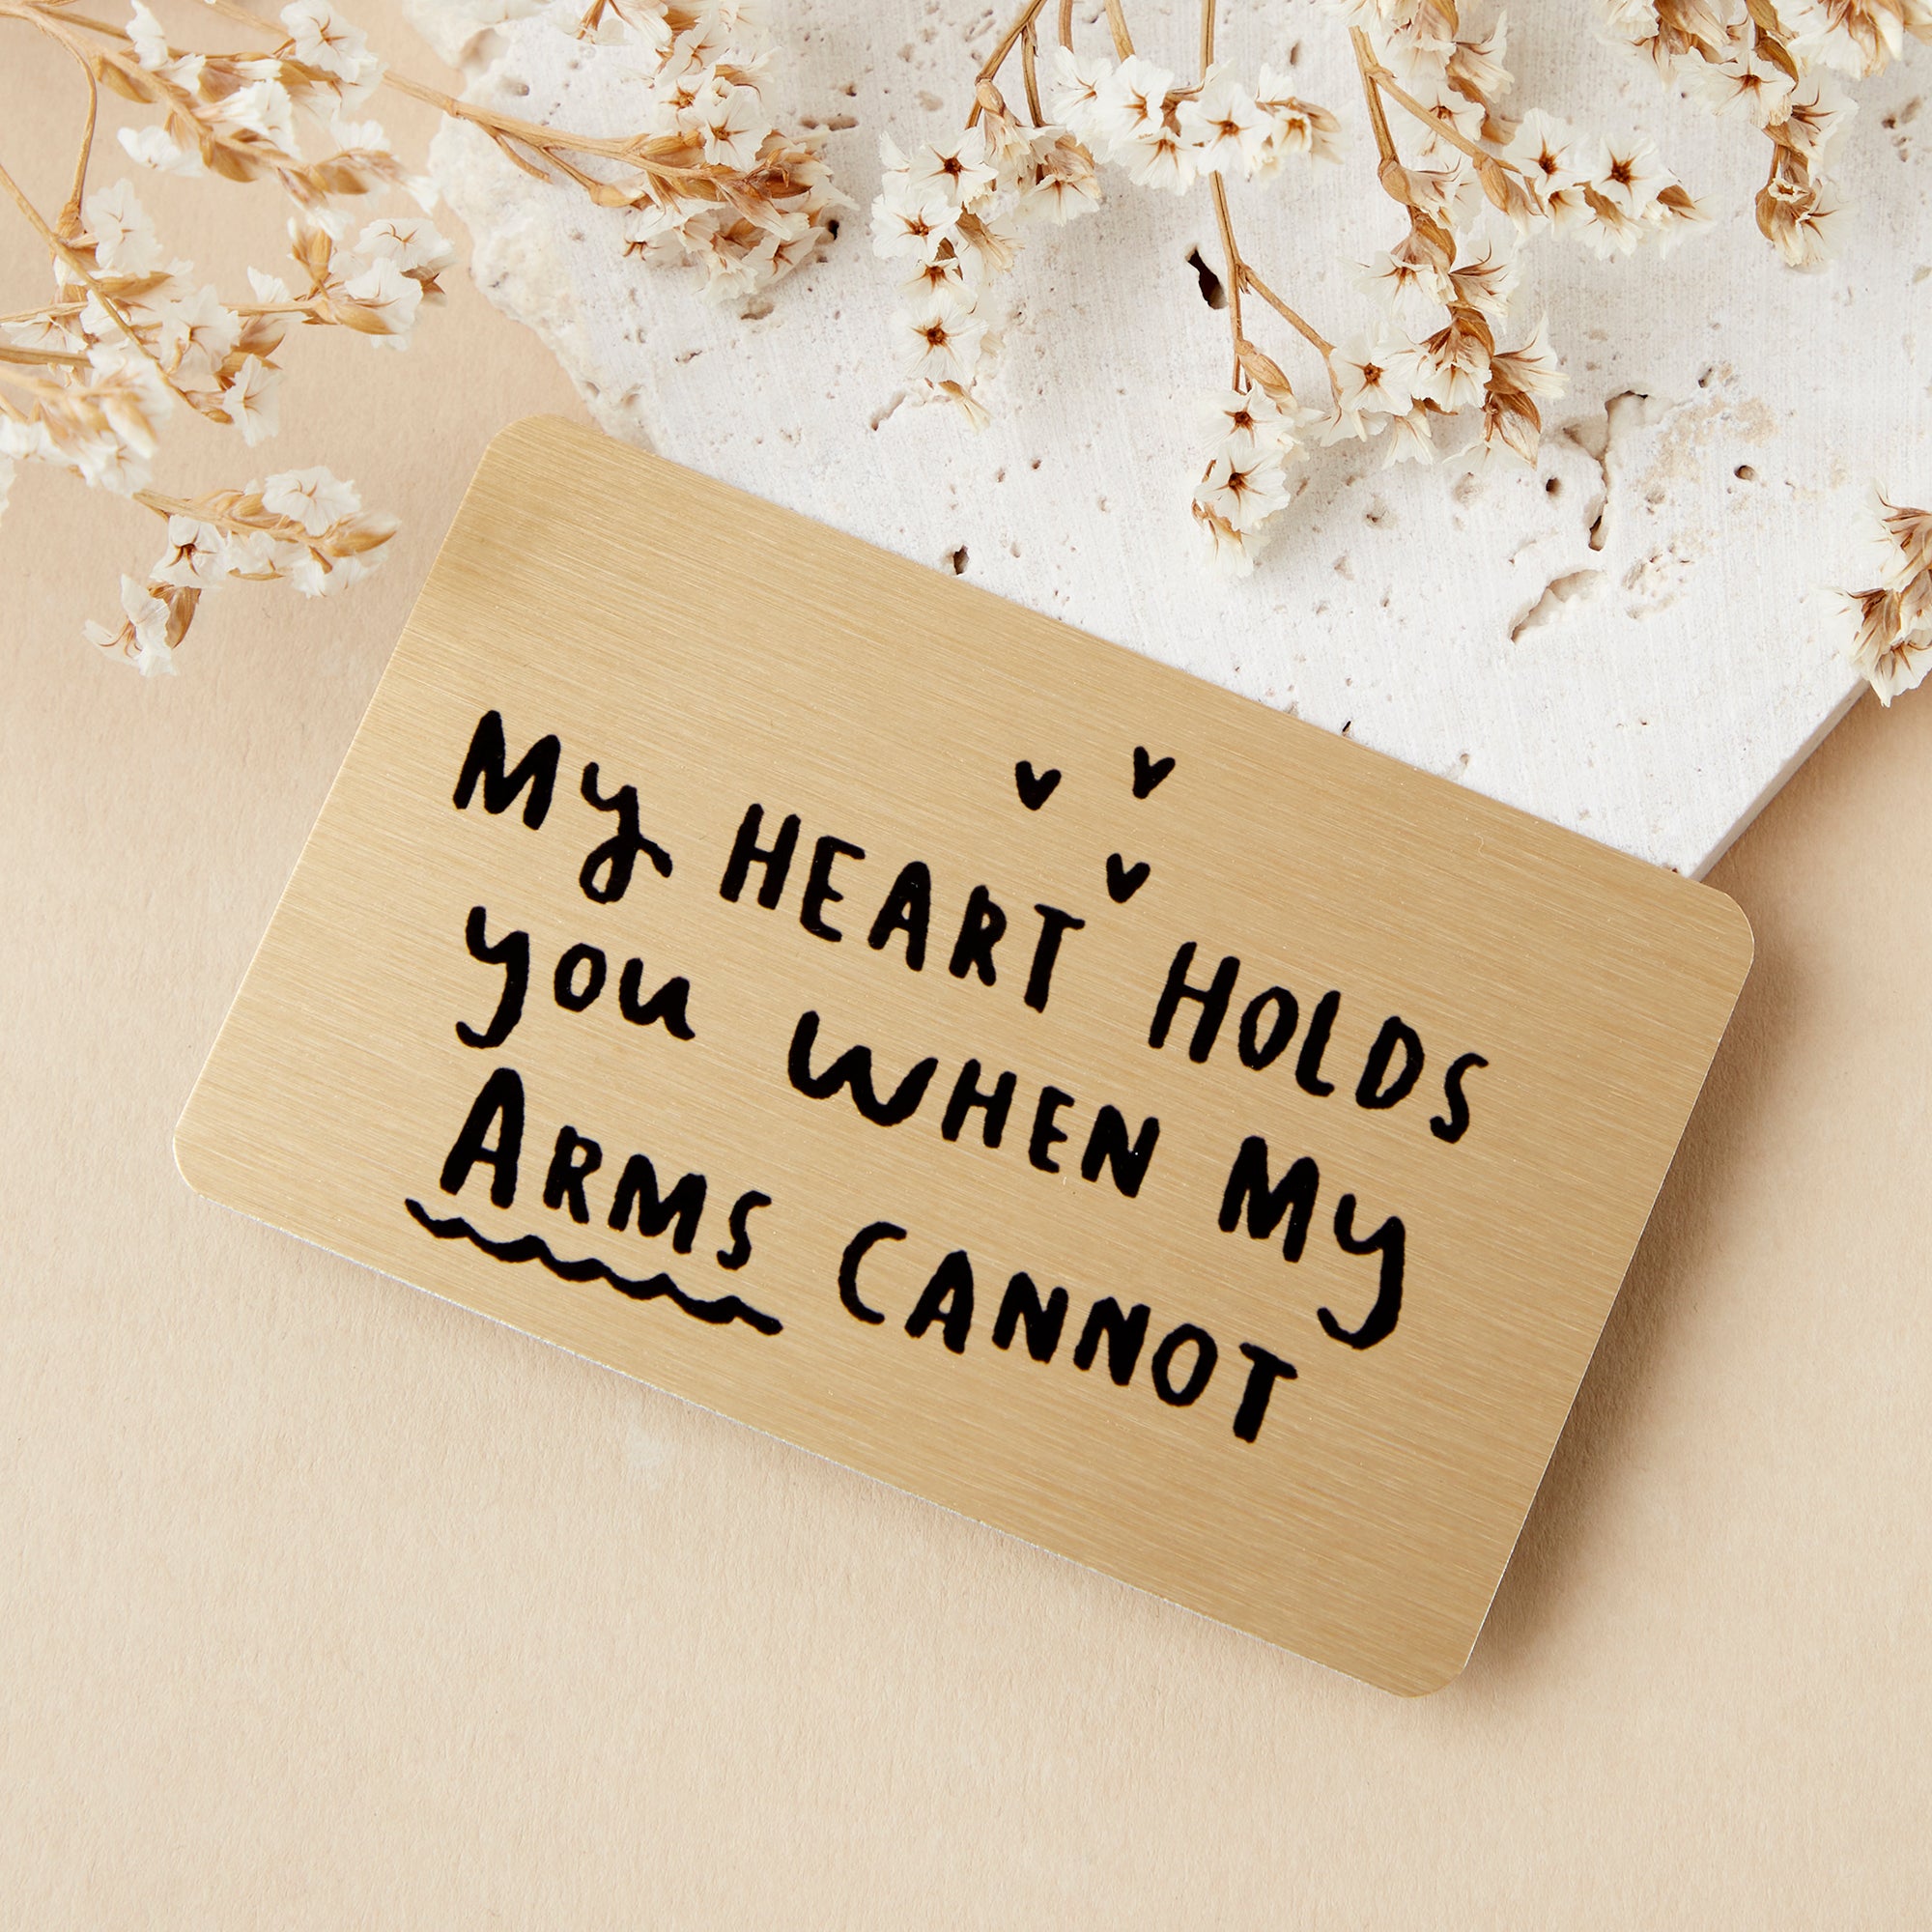 My HEART HOLDS
you WHEN My
ARMS CANNOT